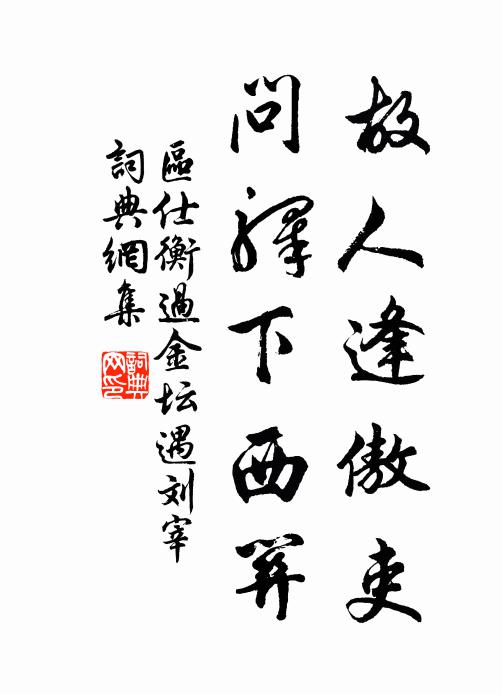 故人逢傲吏
問驛下西關
區仕衡過金坛遇刘宰
詞典網集
詞典网印